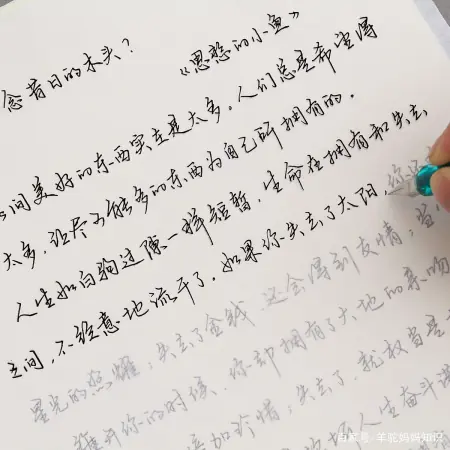 念昔日的木头？ 《愚憨的小鱼》
间美好的东西实在是太多，人们总是希望得
太多，让尽可能多的东西为自己所拥有的。
人生如白驹过隙一样短暂，生命在拥有和失去
之间，不经意地流干了。如果你失去了太阳，你还
星光的照耀；失去了金钱，还会得到友情；当
离开你的时候，你却拥有了大地的亲吻
加珍惜；失去了，就权当是
人生奋斗
百家号·羊驼妈妈知识